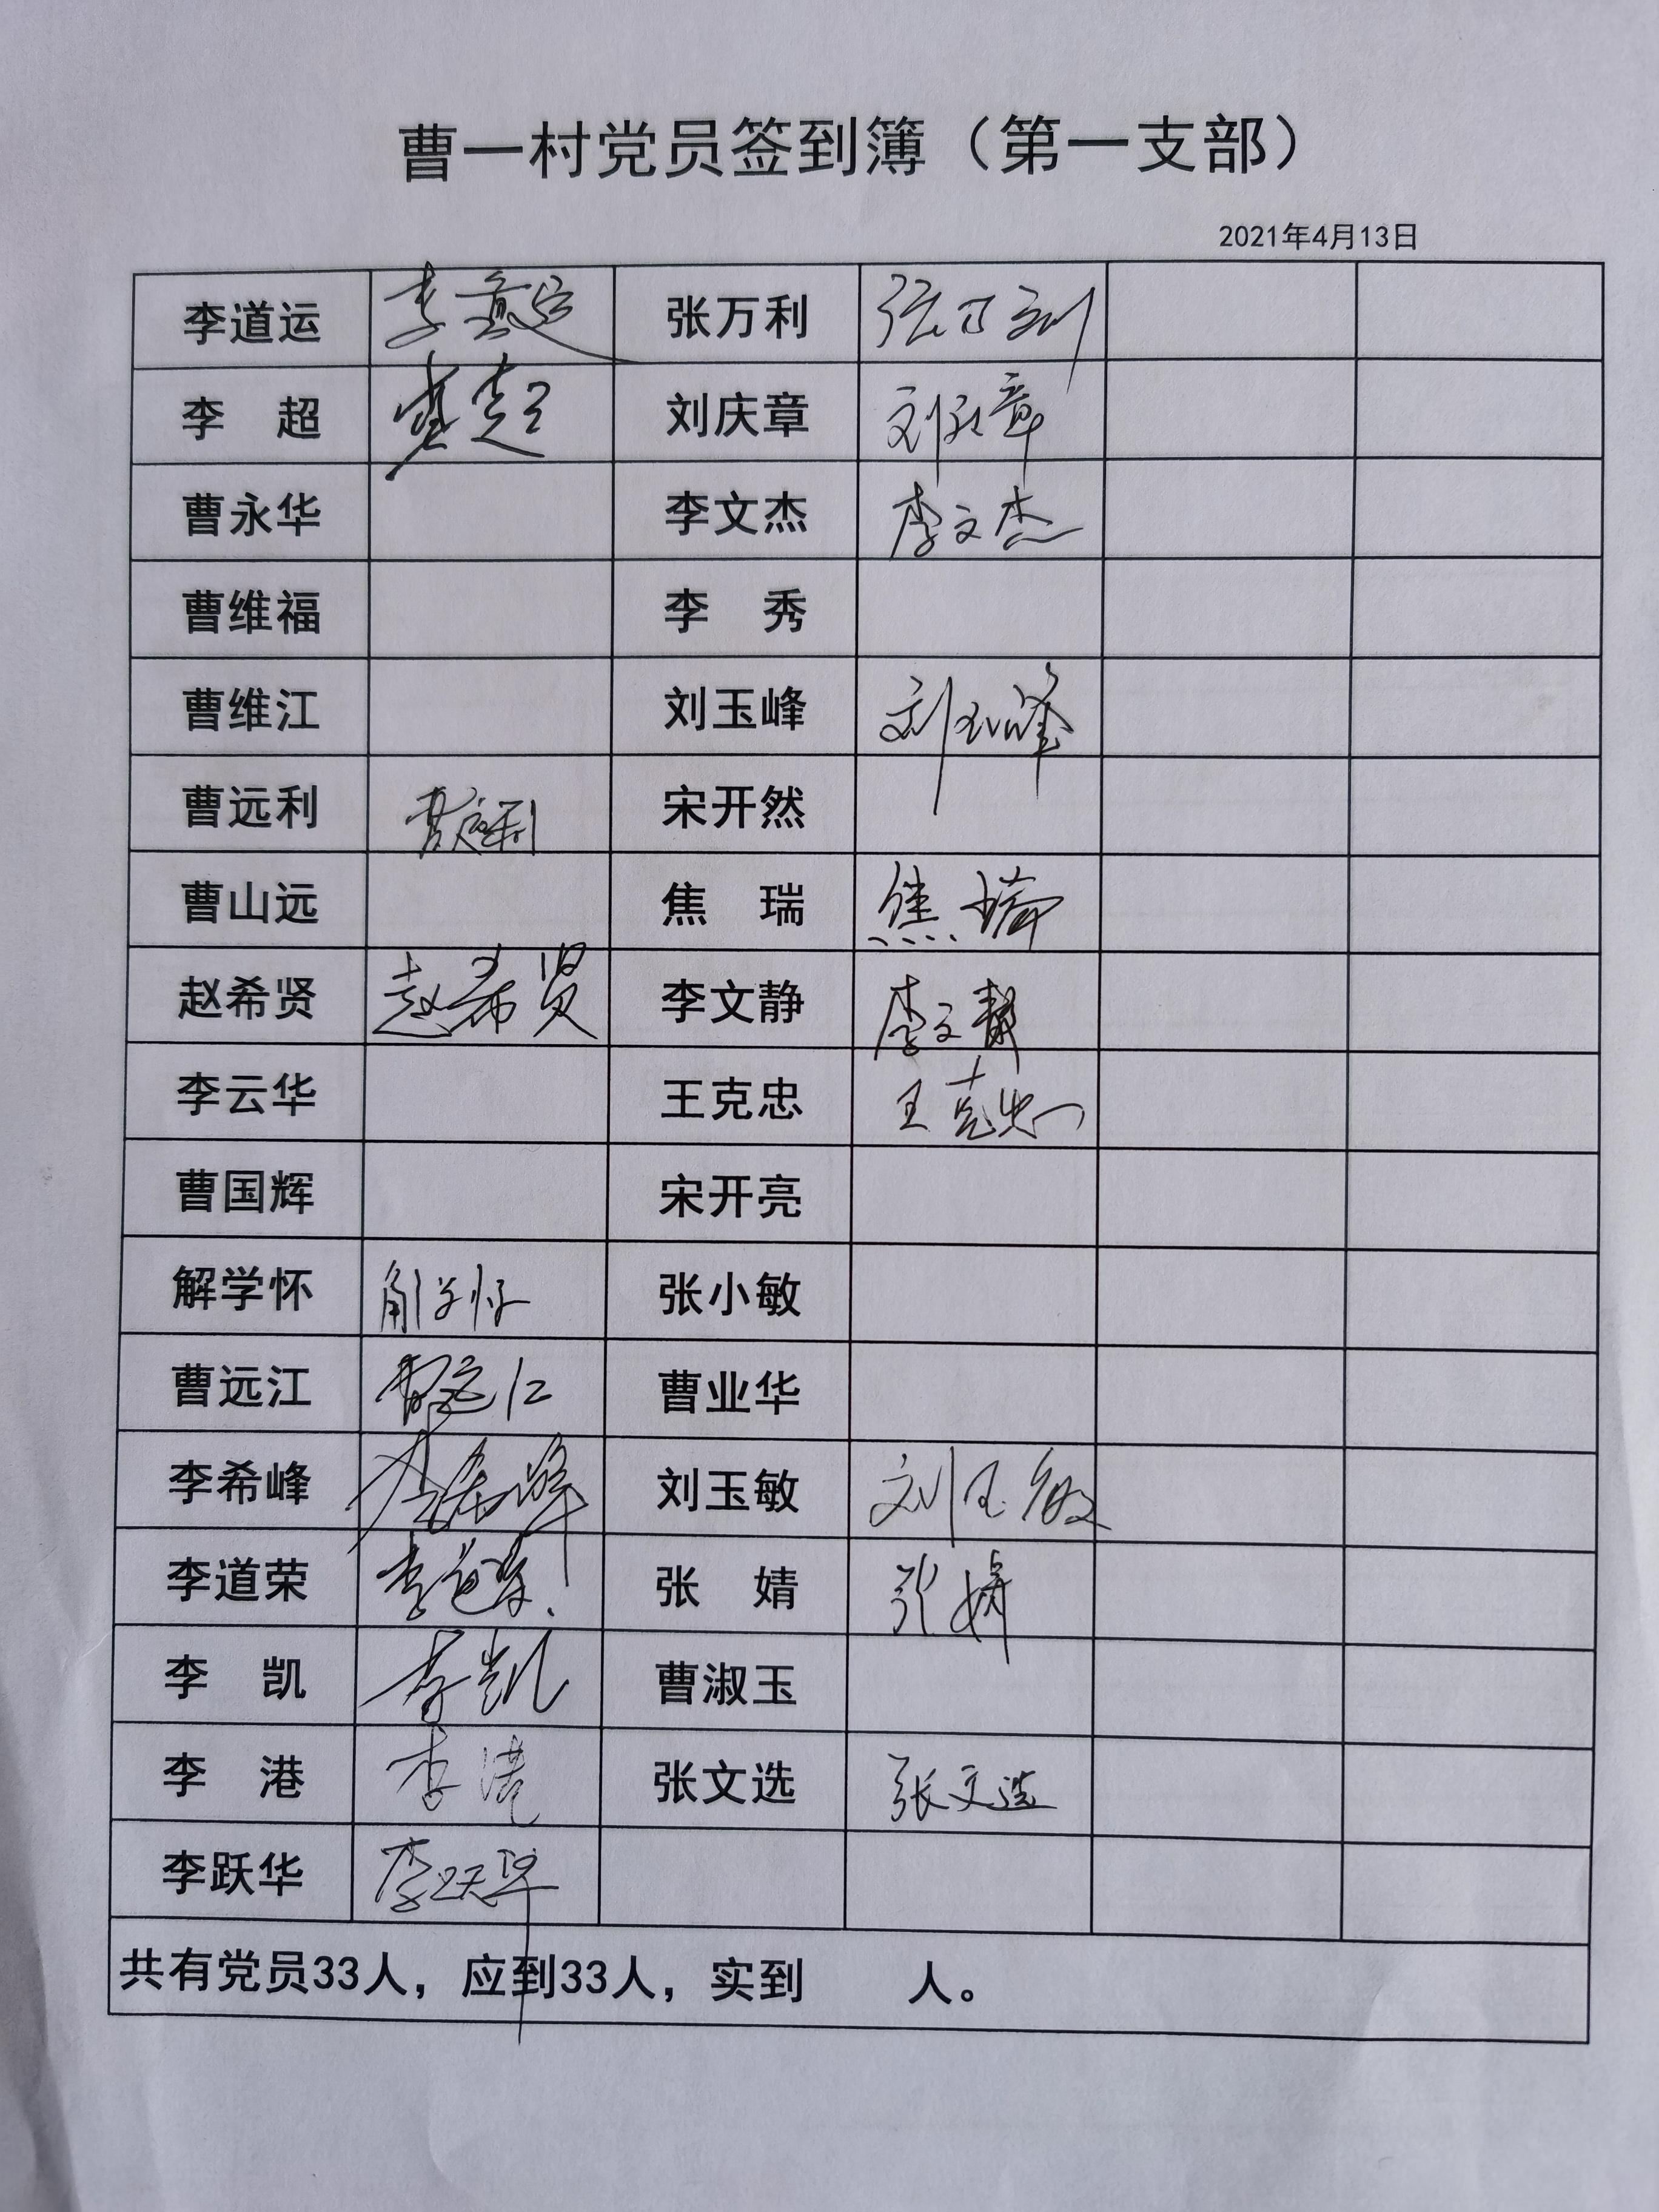 曹一村党员签到簿（第一支部）
2021年4月13日
李道运 李道运 张万利 张万利
李 超 李超 刘庆章 刘庆章
曹永华 李文杰 李文杰
曹维福 李 秀
曹维江 刘玉峰 刘玉峰
曹远利 曹远利 宋开然
曹山远 焦 瑞 焦瑞
赵希贤 赵希贤 李文静 李文静
李云华 王克忠 王克忠
曹国辉 宋开亮
解学怀 解学怀 张小敏
曹远江 曹远江 曹业华
李希峰 李希峰 刘玉敏 刘玉敏
李道荣 李道荣 张 婧 张婧
李 凯 李凯 曹淑玉
李 港 李港 张文选 张文选
李跃华 李跃华
共有党员33人，应到33人，实到 人。